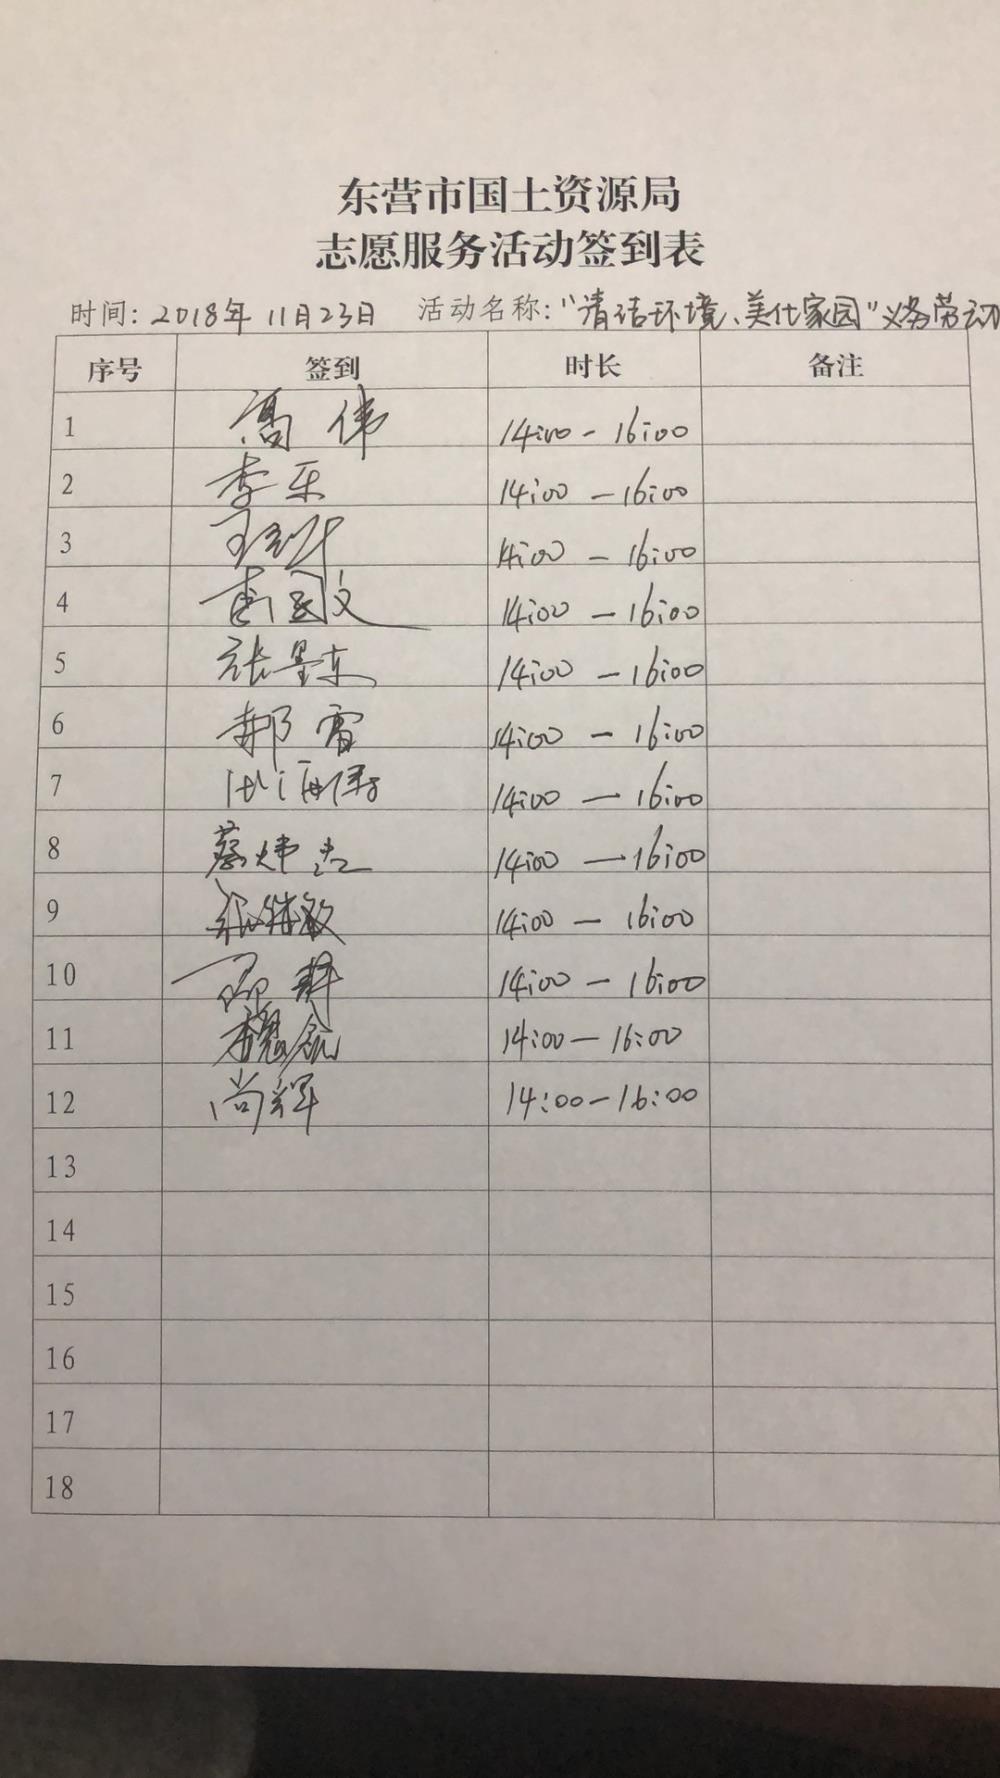 东营市国土资源局
志愿服务活动签到表
时间: 2018年11月23日 活动名称: "清洁环境、美化家园"义务劳动
序号 签到 时长 备注
1 高伟 14:00-16:00
2 李乐 14:00-16:00
3 14:00-16:00
4 国文 14:00-16:00
5 张墨东 14:00-16:00
6 郝雷 14:00-16:00
7 海涛 14:00-16:00
8 蔡炜 14:00-16:00
9 14:00-16:00
10 14:00-16:00
11 14:00-16:00
12 尚辉 14:00-16:00
13
14
15
16
17
18